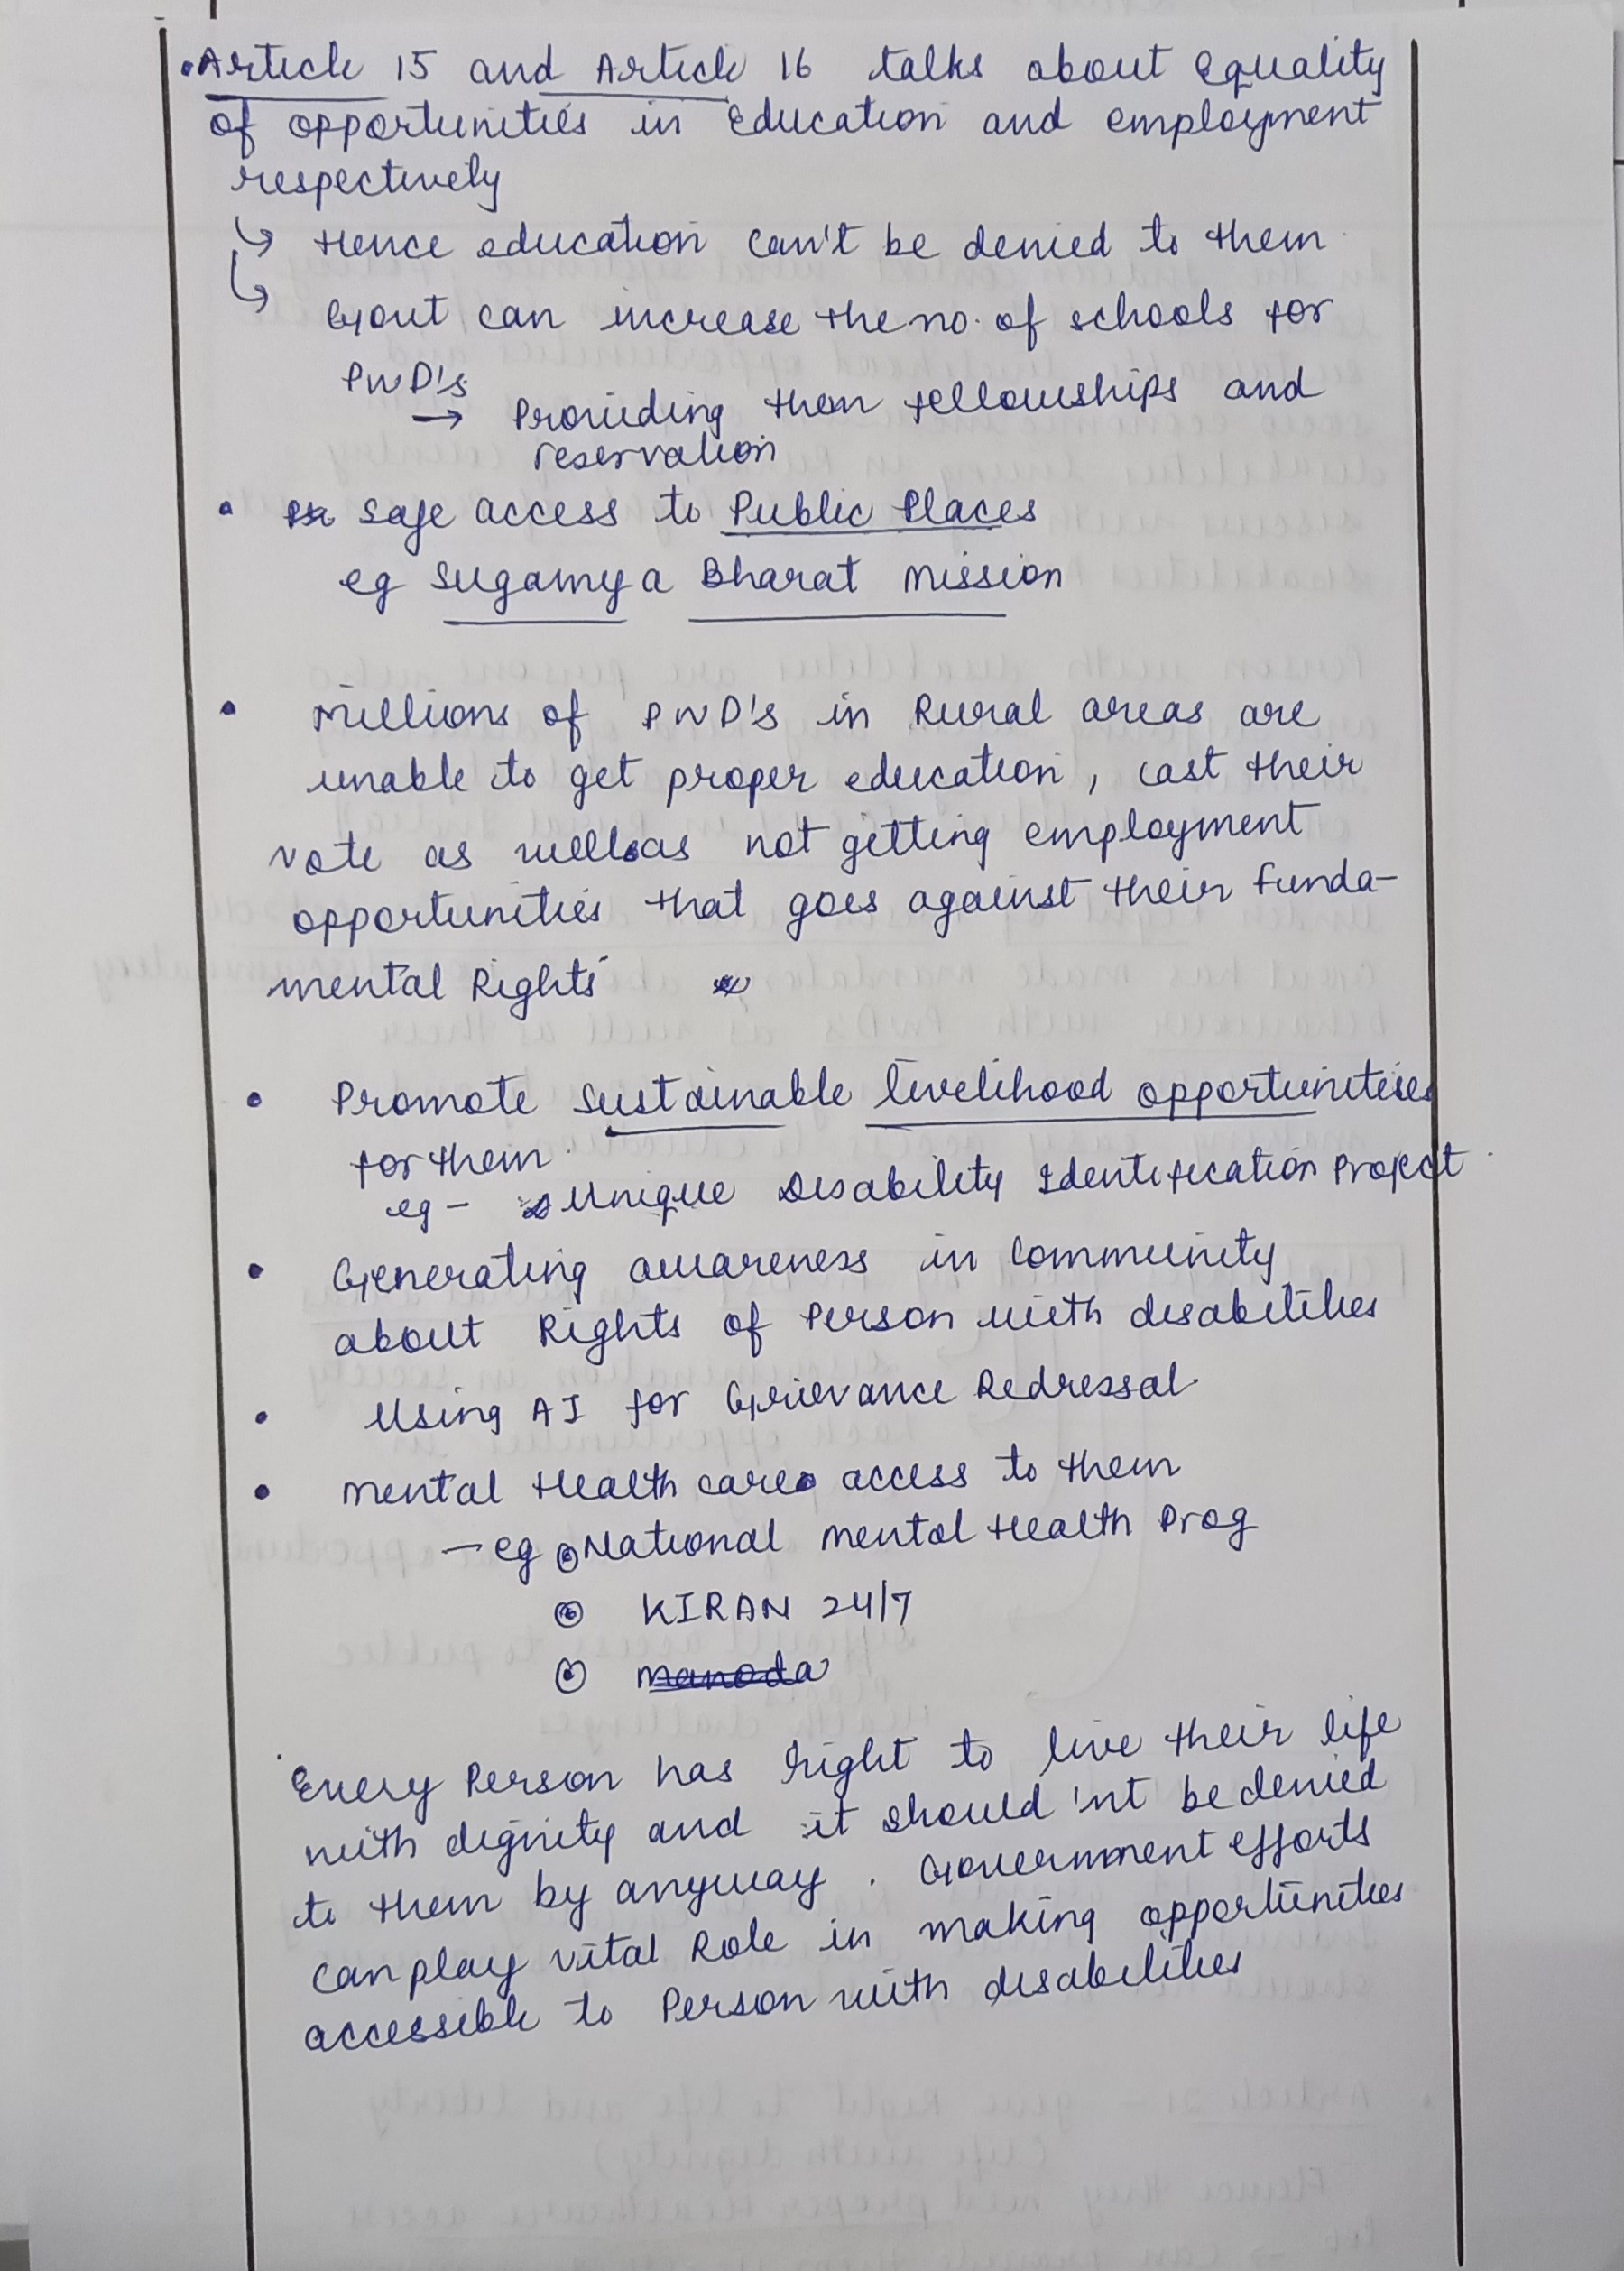 • Article 15 and Article 16 talks about Equality
of opportunities in Education and employment
respectively
↳ Hence education can't be denied to them
↳ Govt can increase the no. of schools for
PWD's
→ Providing them fellowships and
reservation
• Safe access to Public Places
eg Sugamya Bharat Mission
• Millions of PWD's in Rural areas are
unable to get proper education, cast their
vote as well as not getting employment
opportunities that goes against their funda-
mental Rights
• Promote Sustainable livelihood opportunities
for them.
eg - Unique Disability Identification Project
• Generating awareness in Community
about Rights of Person with disabilities
• Using AI for Grievance Redressal
• Mental Health care access to them
- eg ⊙ National Mental Health Prog
⊙ KIRAN 24/7
⊙ manoda
Every Person has right to live their life
with dignity and it should'nt be denied
to them by anyway. Government efforts
can play vital Role in making opportunities
accessible to Person with disabilities